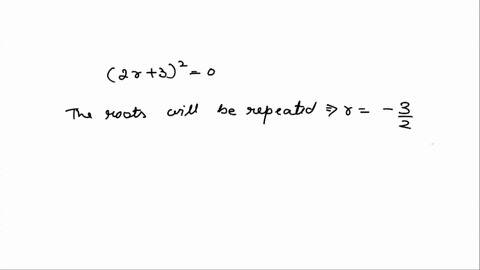 (2r+3)² = 0
The roots will be repeated ⇒ r = -3/2